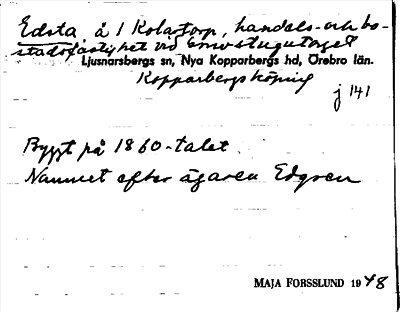 Edsta, å 1 Kolartorp, handels- och bo-
stadsfastighet vid Gruvstugutorget
Ljusnarsbergs sn, Nya Kopparbergs hd, Örebro län.
Kopparbergs köping
j 141
Byggt på 1860-talet.
Namnet efter ägaren Edgren
MAJA FORSSLUND 1948